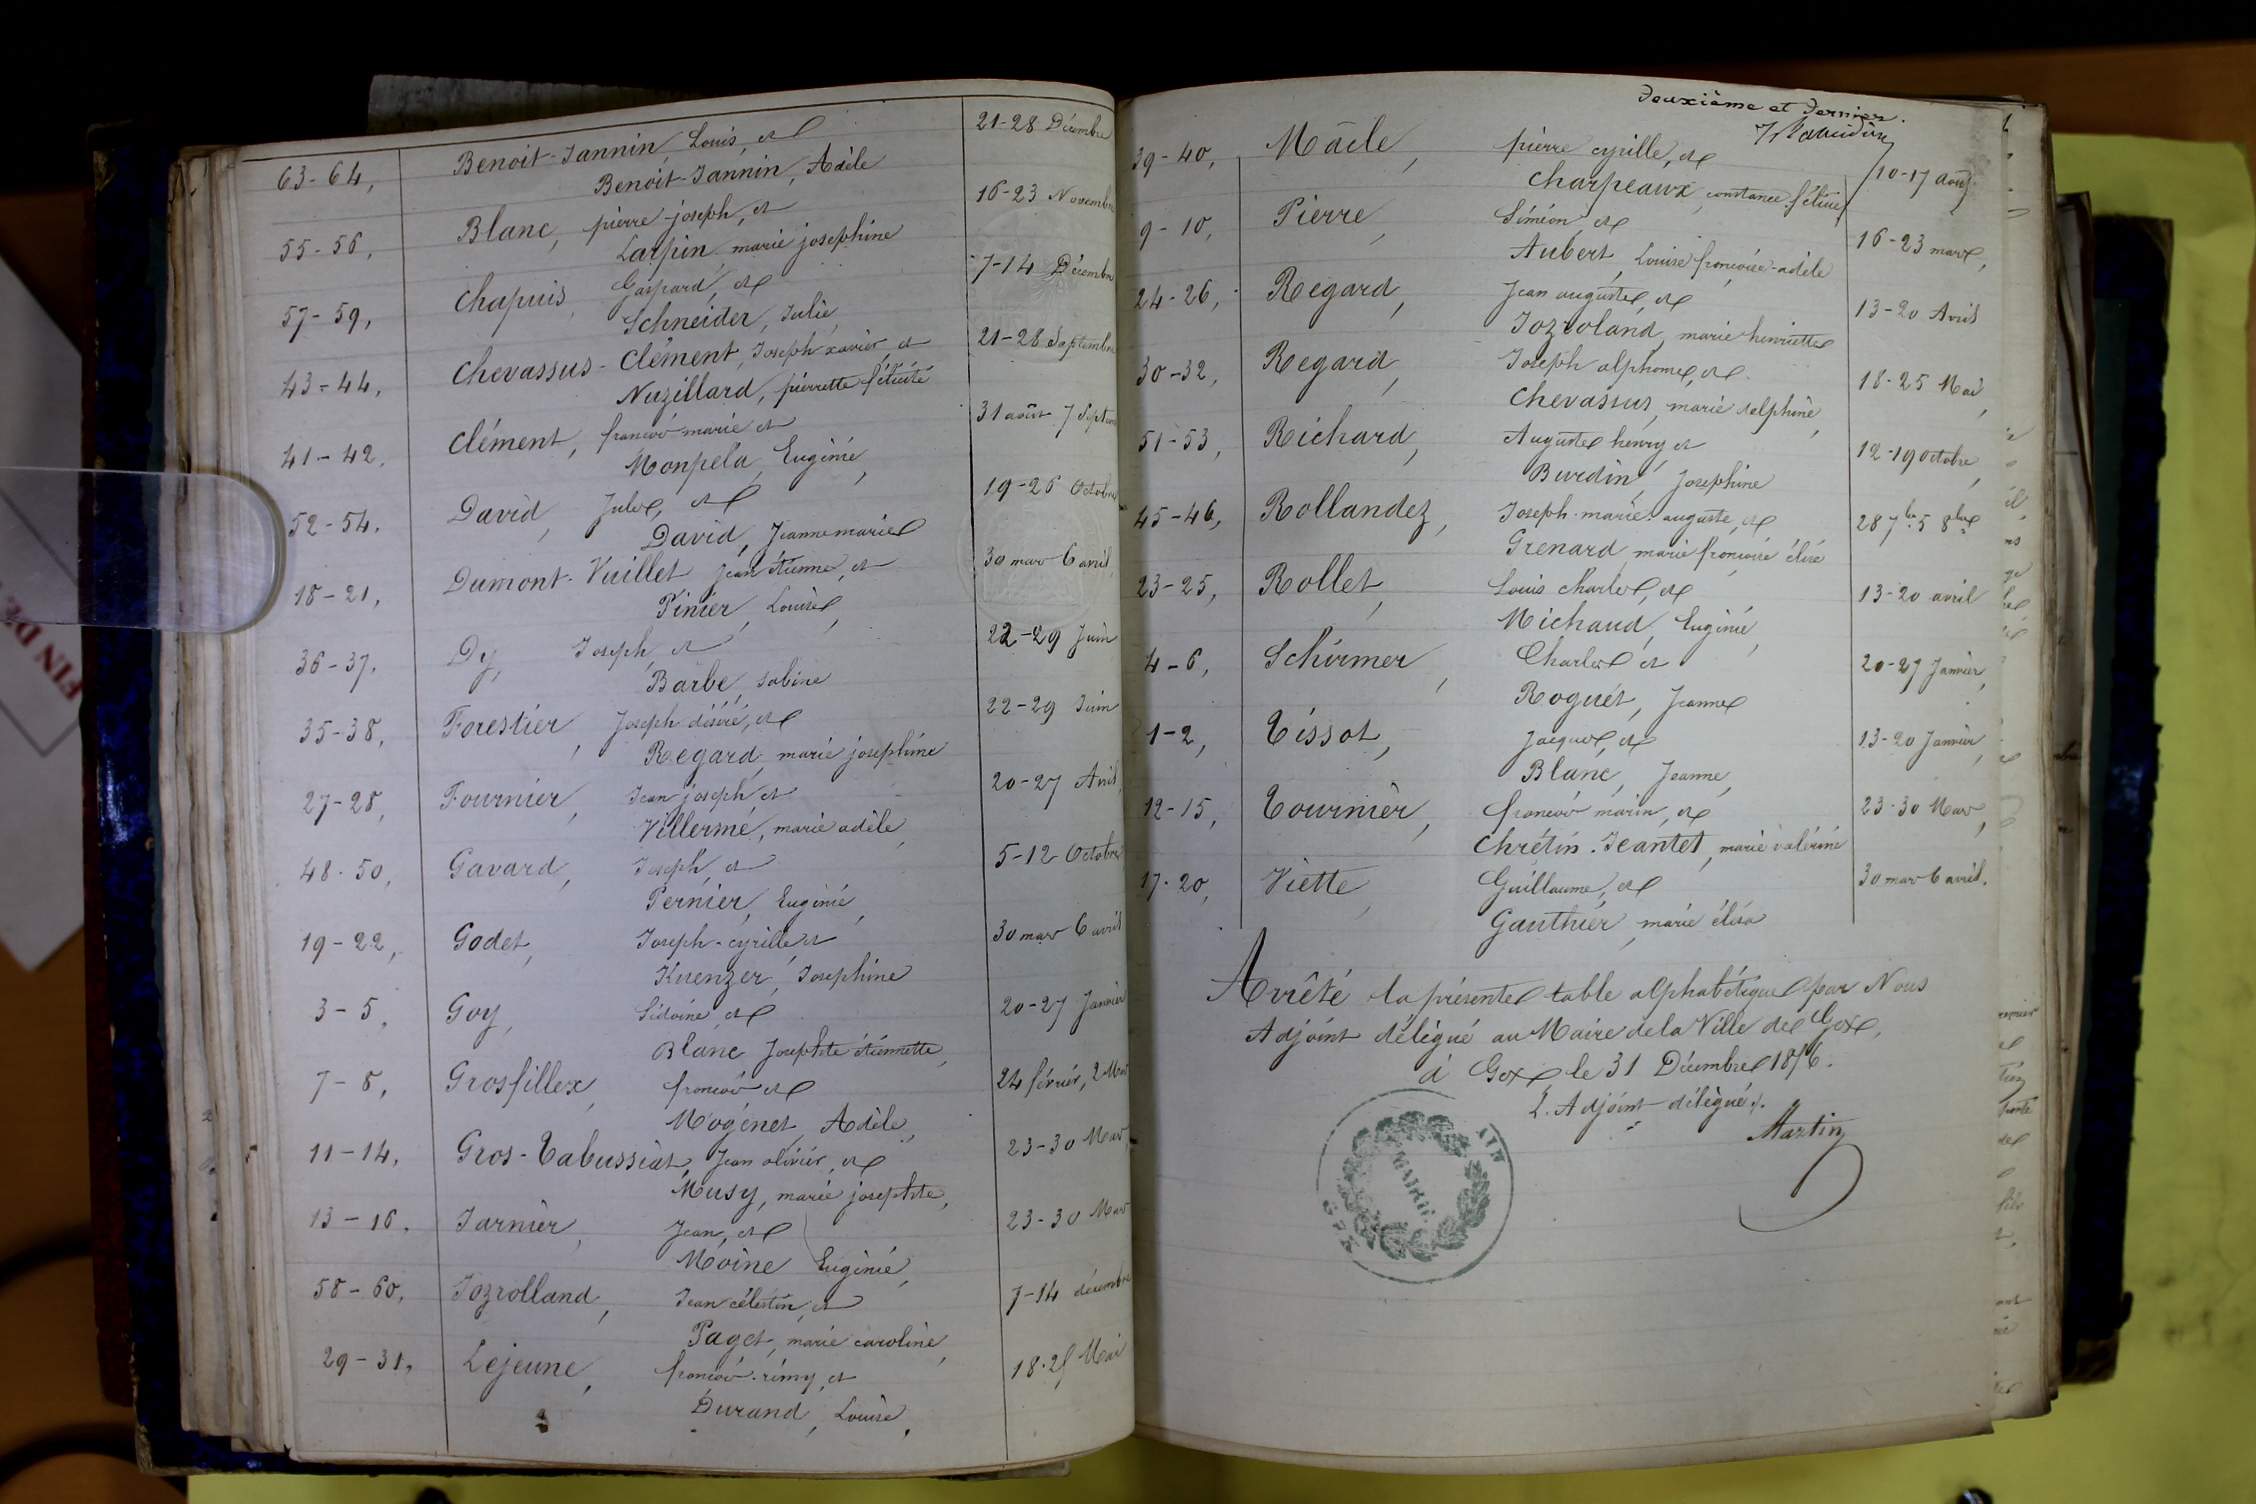 63-64, Benoit-Jannin, Louis, et 21-28 Décembre
Benoit-Jannin, Adèle
55-56, Blanc, pierre-joseph, et 16-23 Novembre
Larpin marie josephine
57-59, Chapuis, Gaspard, et 7-14 Décembre
Schneider, Julie,
43-44, Chevassus-Clément, Joseph xavier, et 21-28 Septembre
Nuzillard, pierrette félicité
41-42, Clément, françois marie et 31 août 7 Septem
Monpela, Eugénie,
52-54. David, Jules, et 19-26 Octobre
David, Jeanne marie
18-21, Dumont-Vuillet jean étienne, et 30 mars 6 avril
Pinier, Louise,
36-37. Dy, Joseph, et 22-29 Juin
Barbe, sabine
35-38, Forestier, Joseph désiré, et 22-29 Juin
Regard, marie josephine
27-28, Fournier, Jean joseph et 20-27 Avril
Villermé, marie adèle,
48-50, Gavard, Joseph, et 5-12 Octobre
Pernier, Eugénie,
19-22, Godet, Joseph-cyrille et 30 mars 6 avril
Kuenzer, Josephine
3-5, Goy, Sidoine, et 20-27 Janvier
Blanc Josephte étiennette,
7-8, Grosfillex, françois et 24 février, 2 Mars
Mogenet, Adèle,
11-14, Gros-Tabussiat, Jean olivier, et 23-30 Mars
Musy, marie josephte,
13-16. Jarnier, Jean, et 23-30 Mars
Moine Eugénie,
58-60, Jozrolland, Jean célestin, et 7-14 décembre
Paget, marie caroline,
29-31, Lejeune, françois-rémy, et 18-25 Mai
Durand, Louise,
Deuxième et Dernier.
39-40, Mâcle, pierre cyrille, et 10-17 août
Charpeaux, constance félicie
9-10, Pierre, Siméon et 16-23 mars,
Aubert, Louise françoise-adèle
24-26, Regard, Jean auguste, et 13-20 Avril
Jozroland, marie henriette
30-32, Regard, Joseph alphonse, et 18-25 Mai,
Chevassus, marie delphine,
51-53, Richard, Auguste henry et 12-19 octobre,
Burdin, Josephine
45-46, Rollandez, Joseph-marie-auguste, et 28 7bre 5 8bre
Grenard, marie françoise élise
23-25, Rollet, Louis charles, et 13-20 avril
Michaud, Eugénie,
4-6, Schirmer, Charles et 20-27 Janvier,
Roguet, Jeanne
1-2, Tissot, Jacques, et 13-20 Janvier,
Blanc, Jeanne,
12-15, Tournier, françois marin, et 23-30 Mars,
Chrétin-Jeantet, marie valérine
17-20, Viette, Guillaume, et 30 mars 6 avril.
Gauthier, marie élisa
Arrêté la présente table alphabétique par Nous
Adjoint délégué au Maire de la Ville de Gex,
à Gex le 31 Décembre 1876.
L. Adjoint délégué.
Martin
MAIRIE
GEX
AIN
FIN DE